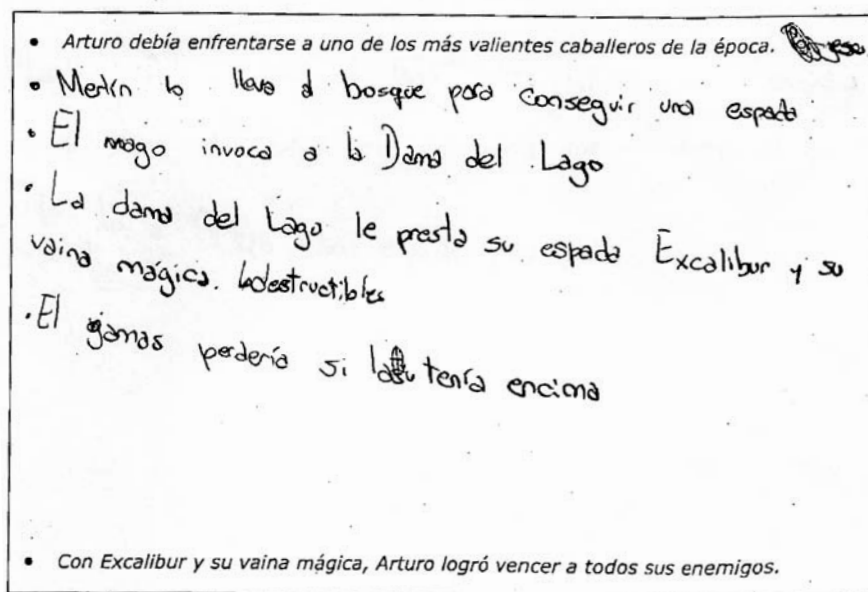 • Arturo debía enfrentarse a uno de los más valientes caballeros de la época.
• Merlín lo lleva al bosque para conseguir una espada
• El mago invoca a la Dama del Lago
• La dama del Lago le presta su espada Excalibur y su
vaina magica. Indestructibles
• El jamas perdería si la tenía encima
• Con Excalibur y su vaina mágica, Arturo logró vencer a todos sus enemigos.